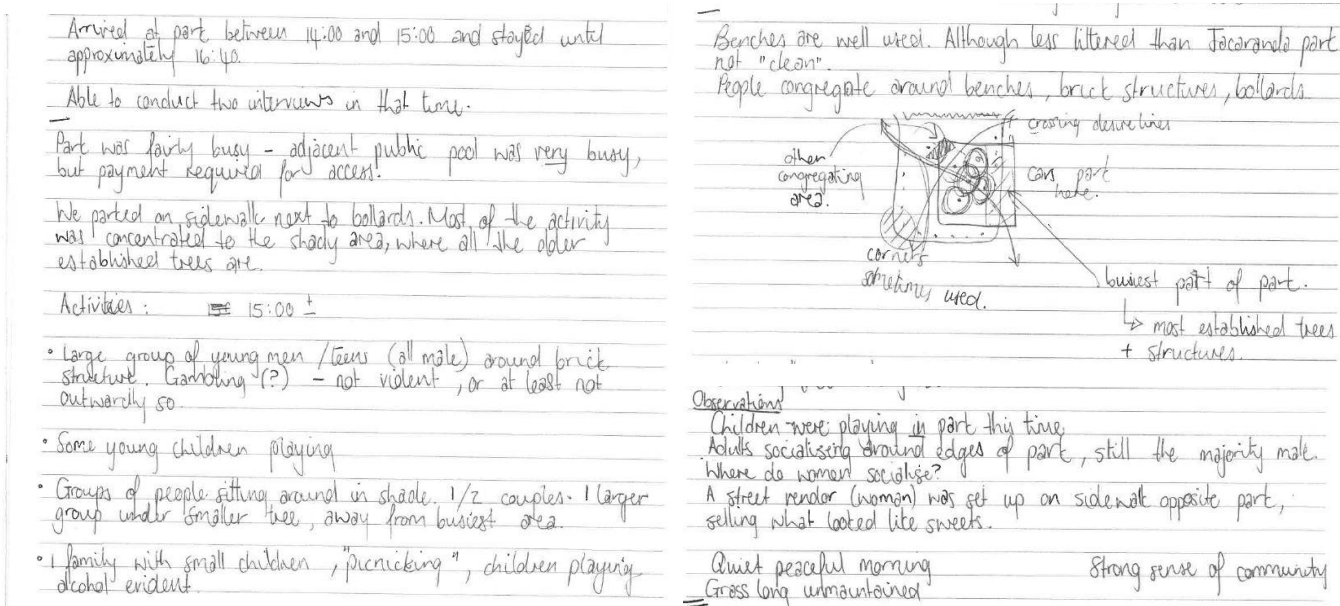 Arrived at park between 14:00 and 15:00 and stayed until
approximately 16:40.
Able to conduct two interviews in that time.
Park was fairly busy – adjacent public pool was very busy,
but payment required for access!
We parked on sidewalk next to bollards. Most of the activity
was concentrated to the shady area, where all the older
established trees are.
Activities: 15:00 ±
• Large group of young men /teens (all male) around brick
structure. Gambling (?) – not violent, or at least not
outwardly so.
• Some young children playing
• Groups of people sitting around in shade. 1/2 couples. 1 larger
group under smaller tree, away from busiest area.
• 1 family with small children, "picnicking", children playing
alcohol evident.
Benches are well used. Although less littered than Jacaranda park
not "clean".
People congregate around benches, brick structures, bollards
crossing desire lines
other
congregating
area.
cars park
here.
corners
sometimes used.
busiest part of park.
↳ most established trees
+ structures.
Observations
Children were playing in park this time
Adults socialising around edges of park, still the majority male.
Where do women socialise?
A street vendor (woman) was set up on sidewalk opposite park,
selling what looked like sweets.
Quiet peaceful morning
Strong sense of community
Grass long unmaintained